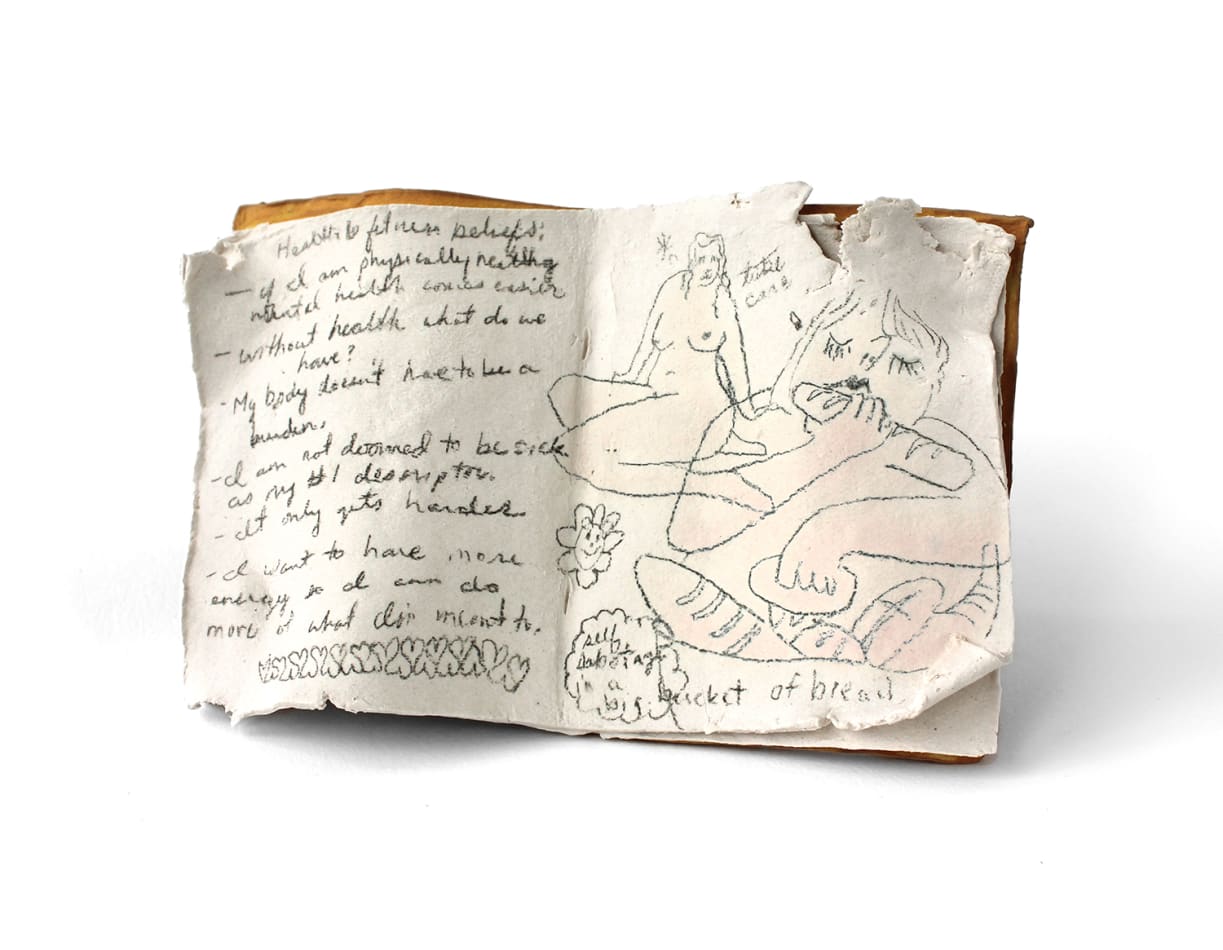 Health & fitness beliefs:
— if I am physically healthy
mental health comes easier
– without health what do we
have?
- My body doesn't have to be a
burden.
- I am not doomed to be sick
as my #1 descriptor.
- It only gets harder
- I want to have more
energy so I can do
more of what I'm meant to.
total
care
self
sabotage
in a
big bucket of bread